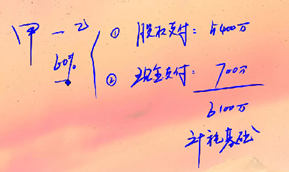 甲 — 乙
60%
① 股权支付：5400万
② 现金支付：700万
6100万
计税基础